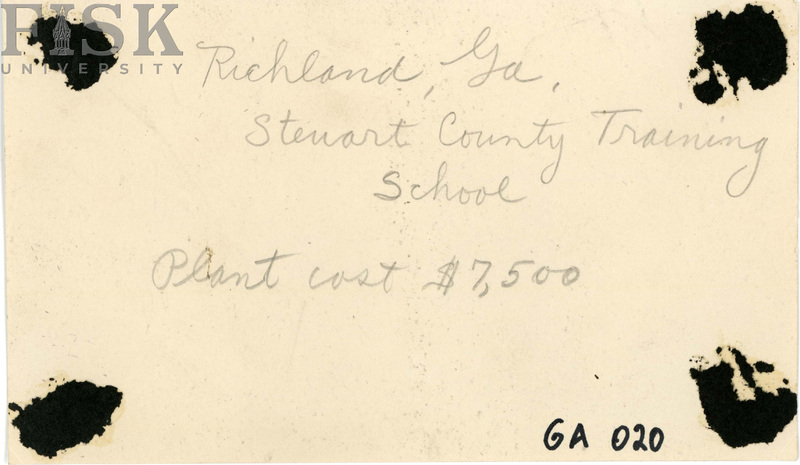 FISK
UNIVERSITY
Richland, Ga.
Stewart County Training
School
Plant cost $7,500
GA 020